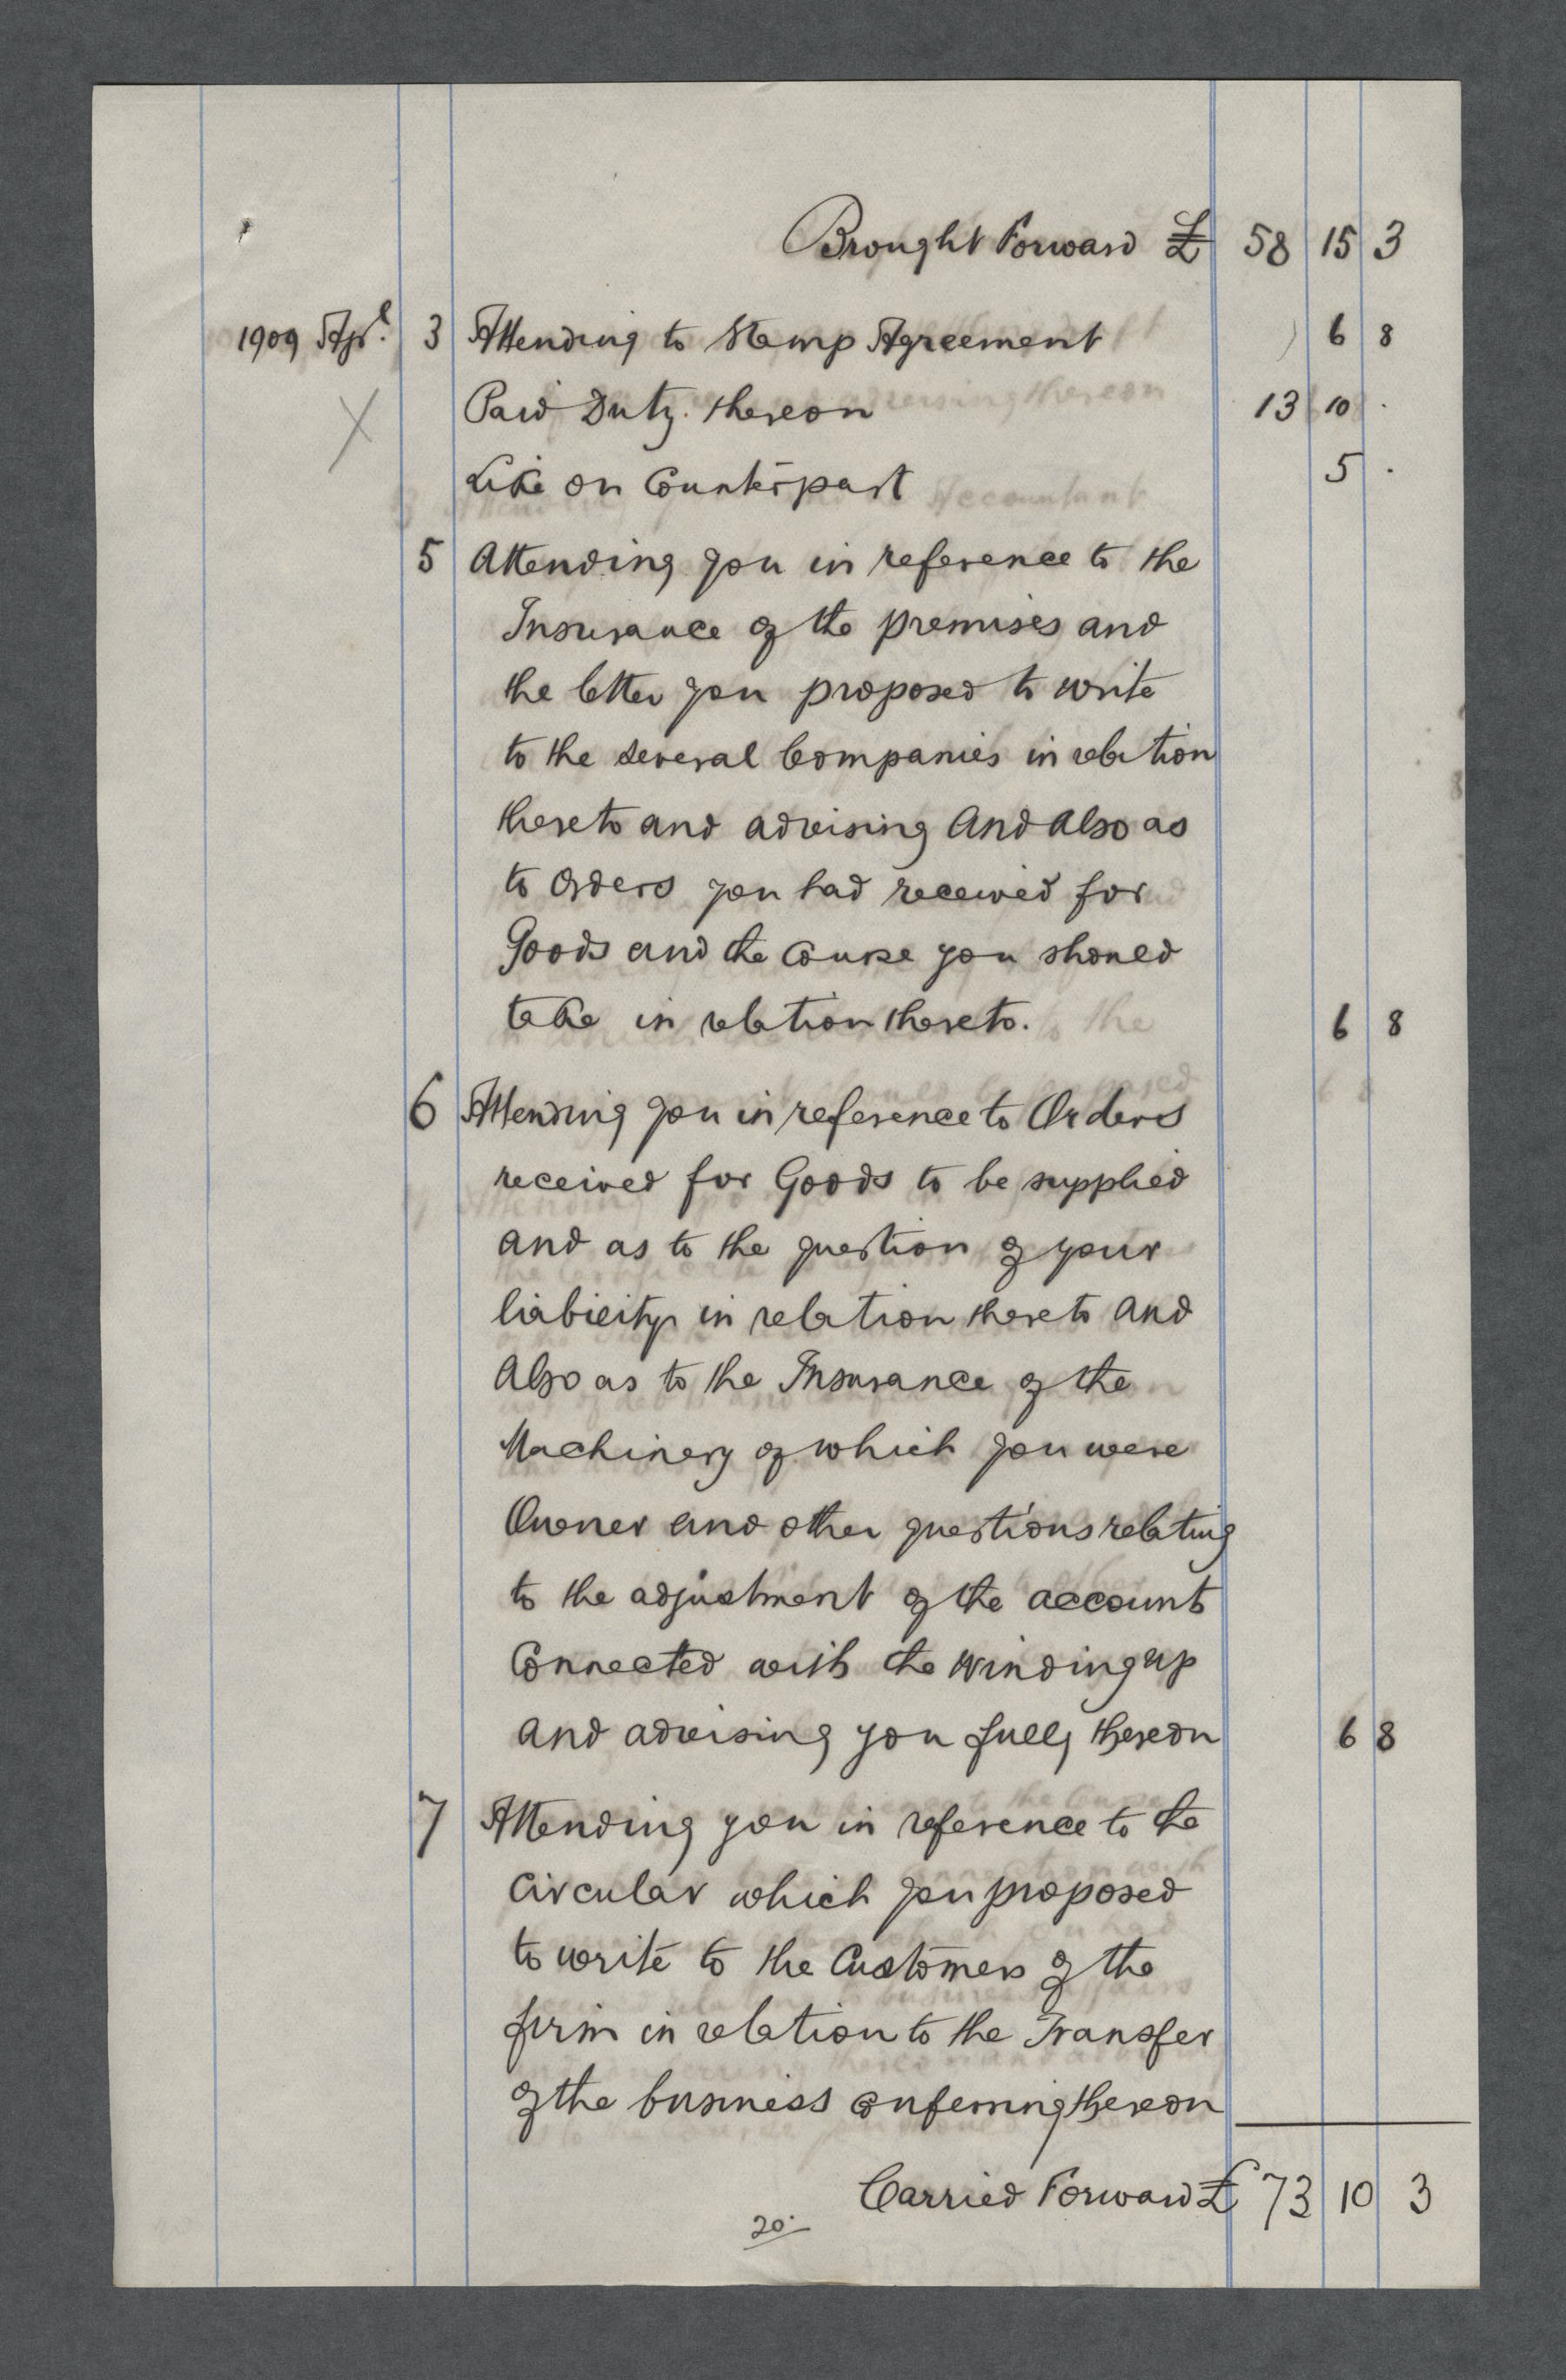 Brought Forward £ 58 15 3
1909 Apl. 3 Attending to Stamp Agreement 6 8
Paid Duty thereon 13 10 .
Like on Counterpart 5 .
5 Attending you in reference to the
Insurance of the premises and
the letter you proposed to write
to the several Companies in relation
thereto and advising And also as
to orders you had received for
Goods and the Course you should
take in relation thereto. 6 8
6 Attending you in reference to Orders
received for Goods to be supplied
and as to the question of your
liability in relation thereto and
Also as to the Insurance of the
Machinery of which you were
Owner and other questions relating
to the adjustment of the accounts
Connected with the Winding up
and advising you fully thereon 6 8
7 Attending you in reference to the
Circular which you proposed
to write to the Customers of the
firm in relation to the Transfer
of the business conferring thereon
Carried Forward £ 73 10 3
20.